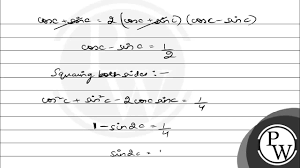 cosc + sinc = 2 (cosc + sinc) (cosc - sinc)
cosc - sinc = 1/2
Squaring both sides :-
cos²c + sin²c - 2cosc sinc = 1/4
1 - sin2c = 1/4
sin2c =
PW